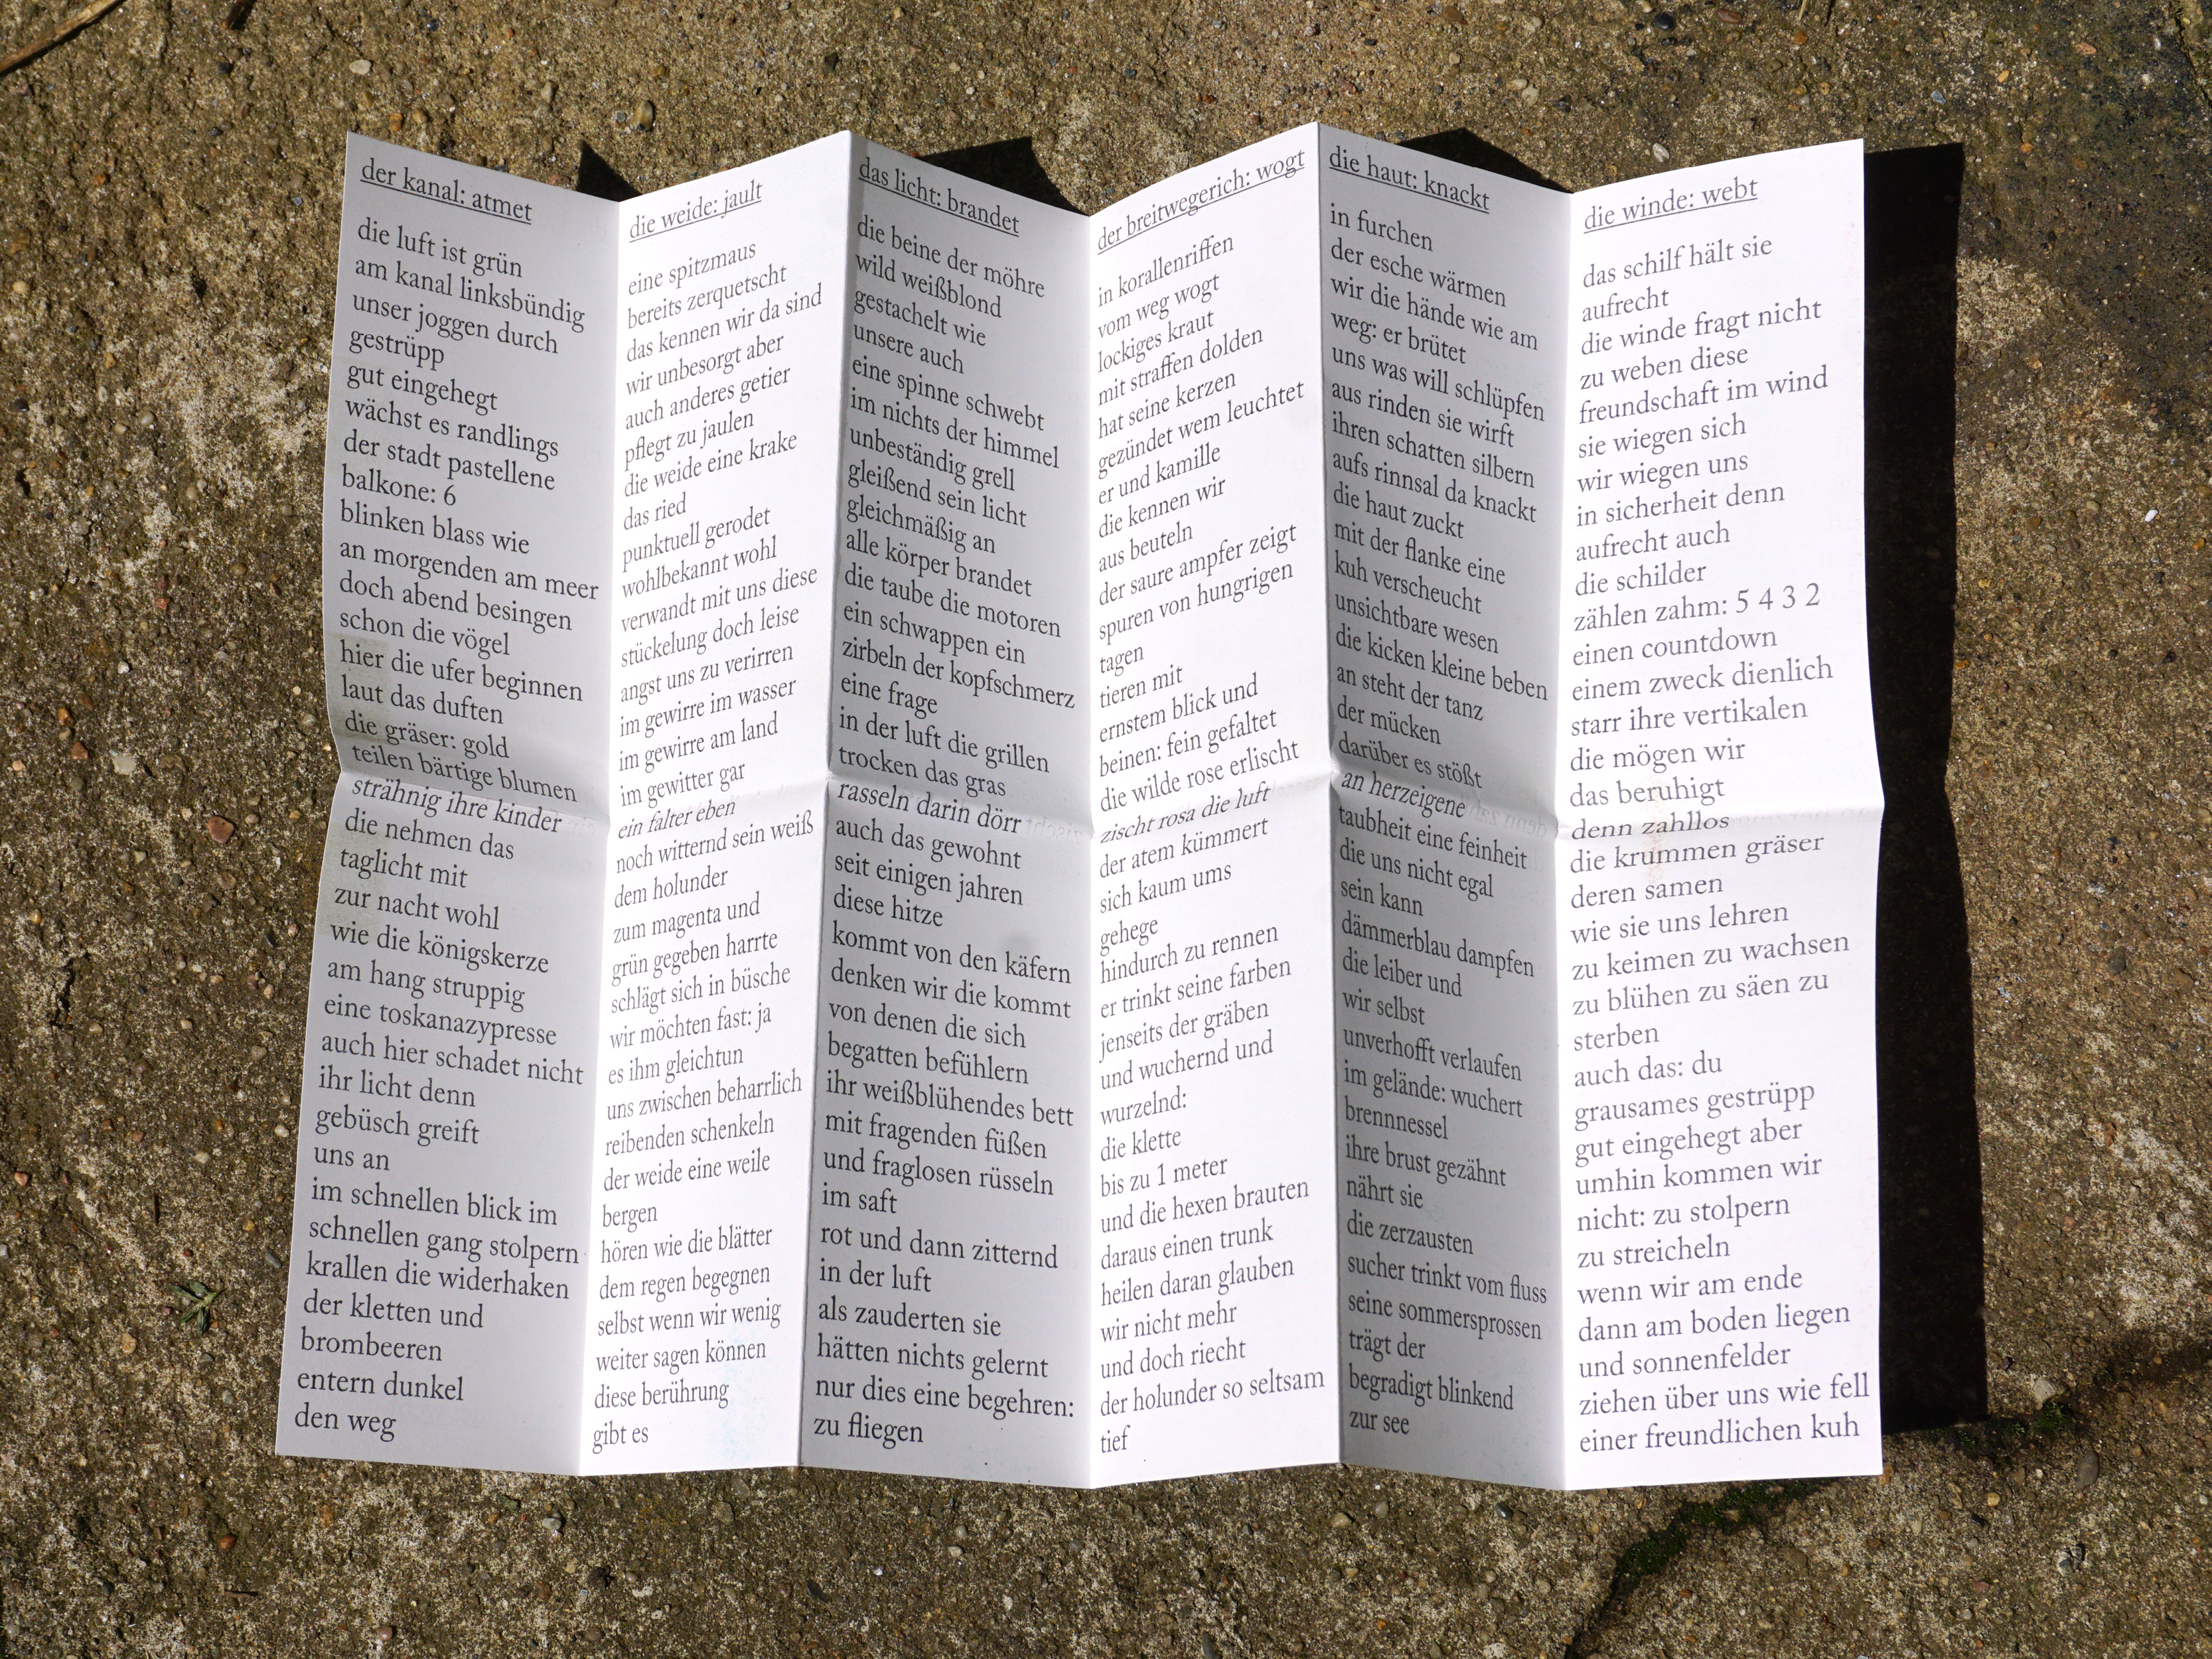 der kanal: atmet
die luft ist grün
am kanal linksbündig
unser joggen durch
gestrüpp
gut eingehegt
wächst es randlings
der stadt pastellene
balkone: 6
blinken blass wie
an morgenden am meer
doch abend besingen
schon die vögel
hier die ufer beginnen
laut das duften
die gräser: gold
teilen bärtige blumen
strähnig ihre kinder
die nehmen das
taglicht mit
zur nacht wohl
wie die königskerze
am hang struppig
eine toskanazypresse
auch hier schadet nicht
ihr licht denn
gebüsch greift
uns an
im schnellen blick im
schnellen gang stolpern
krallen die widerhaken
der kletten und
brombeeren
entern dunkel
den weg
die weide: jault
eine spitzmaus
bereits zerquetscht
das kennen wir da sind
wir unbesorgt aber
auch anderes getier
pflegt zu jaulen
die weide eine krake
das ried
punktuell gerodet
wohlbekannt wohl
verwandt mit uns diese
stückelung doch leise
angst uns zu verirren
im gewirre im wasser
im gewirre am land
im gewitter gar
ein falter eben
noch witternd sein weiß
dem holunder
zum magenta und
grün gegeben harrte
schlägt sich in büsche
wir möchten fast: ja
es ihm gleichtun
uns zwischen beharrlich
reibenden schenkeln
der weide eine weile
bergen
hören wie die blätter
dem regen begegnen
selbst wenn wir wenig
weiter sagen können
diese berührung
gibt es
das licht: brandet
die beine der möhre
wild weißblond
gestachelt wie
unsere auch
eine spinne schwebt
im nichts der himmel
unbeständig grell
gleißend sein licht
gleichmäßig an
alle körper brandet
die taube die motoren
ein schwappen ein
zirbeln der kopfschmerz
eine frage
in der luft die grillen
trocken das gras
rasseln darin dörr
auch das gewohnt
seit einigen jahren
diese hitze
kommt von den käfern
denken wir die kommt
von denen die sich
begatten befühlern
ihr weißblühendes bett
mit fragenden füßen
und fraglosen rüsseln
im saft
rot und dann zitternd
in der luft
als zauderten sie
hätten nichts gelernt
nur dies eine begehren:
zu fliegen
der breitwegerich: wogt
in korallenriffen
vom weg wogt
lockiges kraut
mit straffen dolden
hat seine kerzen
gezündet wem leuchtet
er und kamille
die kennen wir
aus beuteln
der saure ampfer zeigt
spuren von hungrigen
tagen
tieren mit
ernstem blick und
beinen: fein gefaltet
die wilde rose erlischt
zischt rosa die luft
der atem kümmert
sich kaum ums
gehege
hindurch zu rennen
er trinkt seine farben
jenseits der gräben
und wuchernd und
wurzelnd:
die klette
bis zu 1 meter
und die hexen brauten
daraus einen trunk
heilen daran glauben
wir nicht mehr
und doch riecht
der holunder so seltsam
tief
die haut: knackt
in furchen
der esche wärmen
wir die hände wie am
weg: er brütet
uns was will schlüpfen
aus rinden sie wirft
ihren schatten silbern
aufs rinnsal da knackt
die haut zuckt
mit der flanke eine
kuh verscheucht
unsichtbare wesen
die kicken kleine beben
an steht der tanz
der mücken
darüber es stößt
an herzeigene
taubheit eine feinheit
die uns nicht egal
sein kann
dämmerblau dampfen
die leiber und
wir selbst
unverhofft verlaufen
im gelände: wuchert
brennnessel
ihre brust gezähnt
nährt sie
die zerzausten
sucher trinkt vom fluss
seine sommersprossen
trägt der
begradigt blinkend
zur see
die winde: webt
das schilf hält sie
aufrecht
die winde fragt nicht
zu weben diese
freundschaft im wind
sie wiegen sich
wir wiegen uns
in sicherheit denn
aufrecht auch
die schilder
zählen zahm: 5 4 3 2
einen countdown
einem zweck dienlich
starr ihre vertikalen
die mögen wir
das beruhigt
denn zahllos
die krummen gräser
deren samen
wie sie uns lehren
zu keimen zu wachsen
zu blühen zu säen zu
sterben
auch das: du
grausames gestrüpp
gut eingehegt aber
umhin kommen wir
nicht: zu stolpern
zu streicheln
wenn wir am ende
dann am boden liegen
und sonnenfelder
ziehen über uns wie fell
einer freundlichen kuh